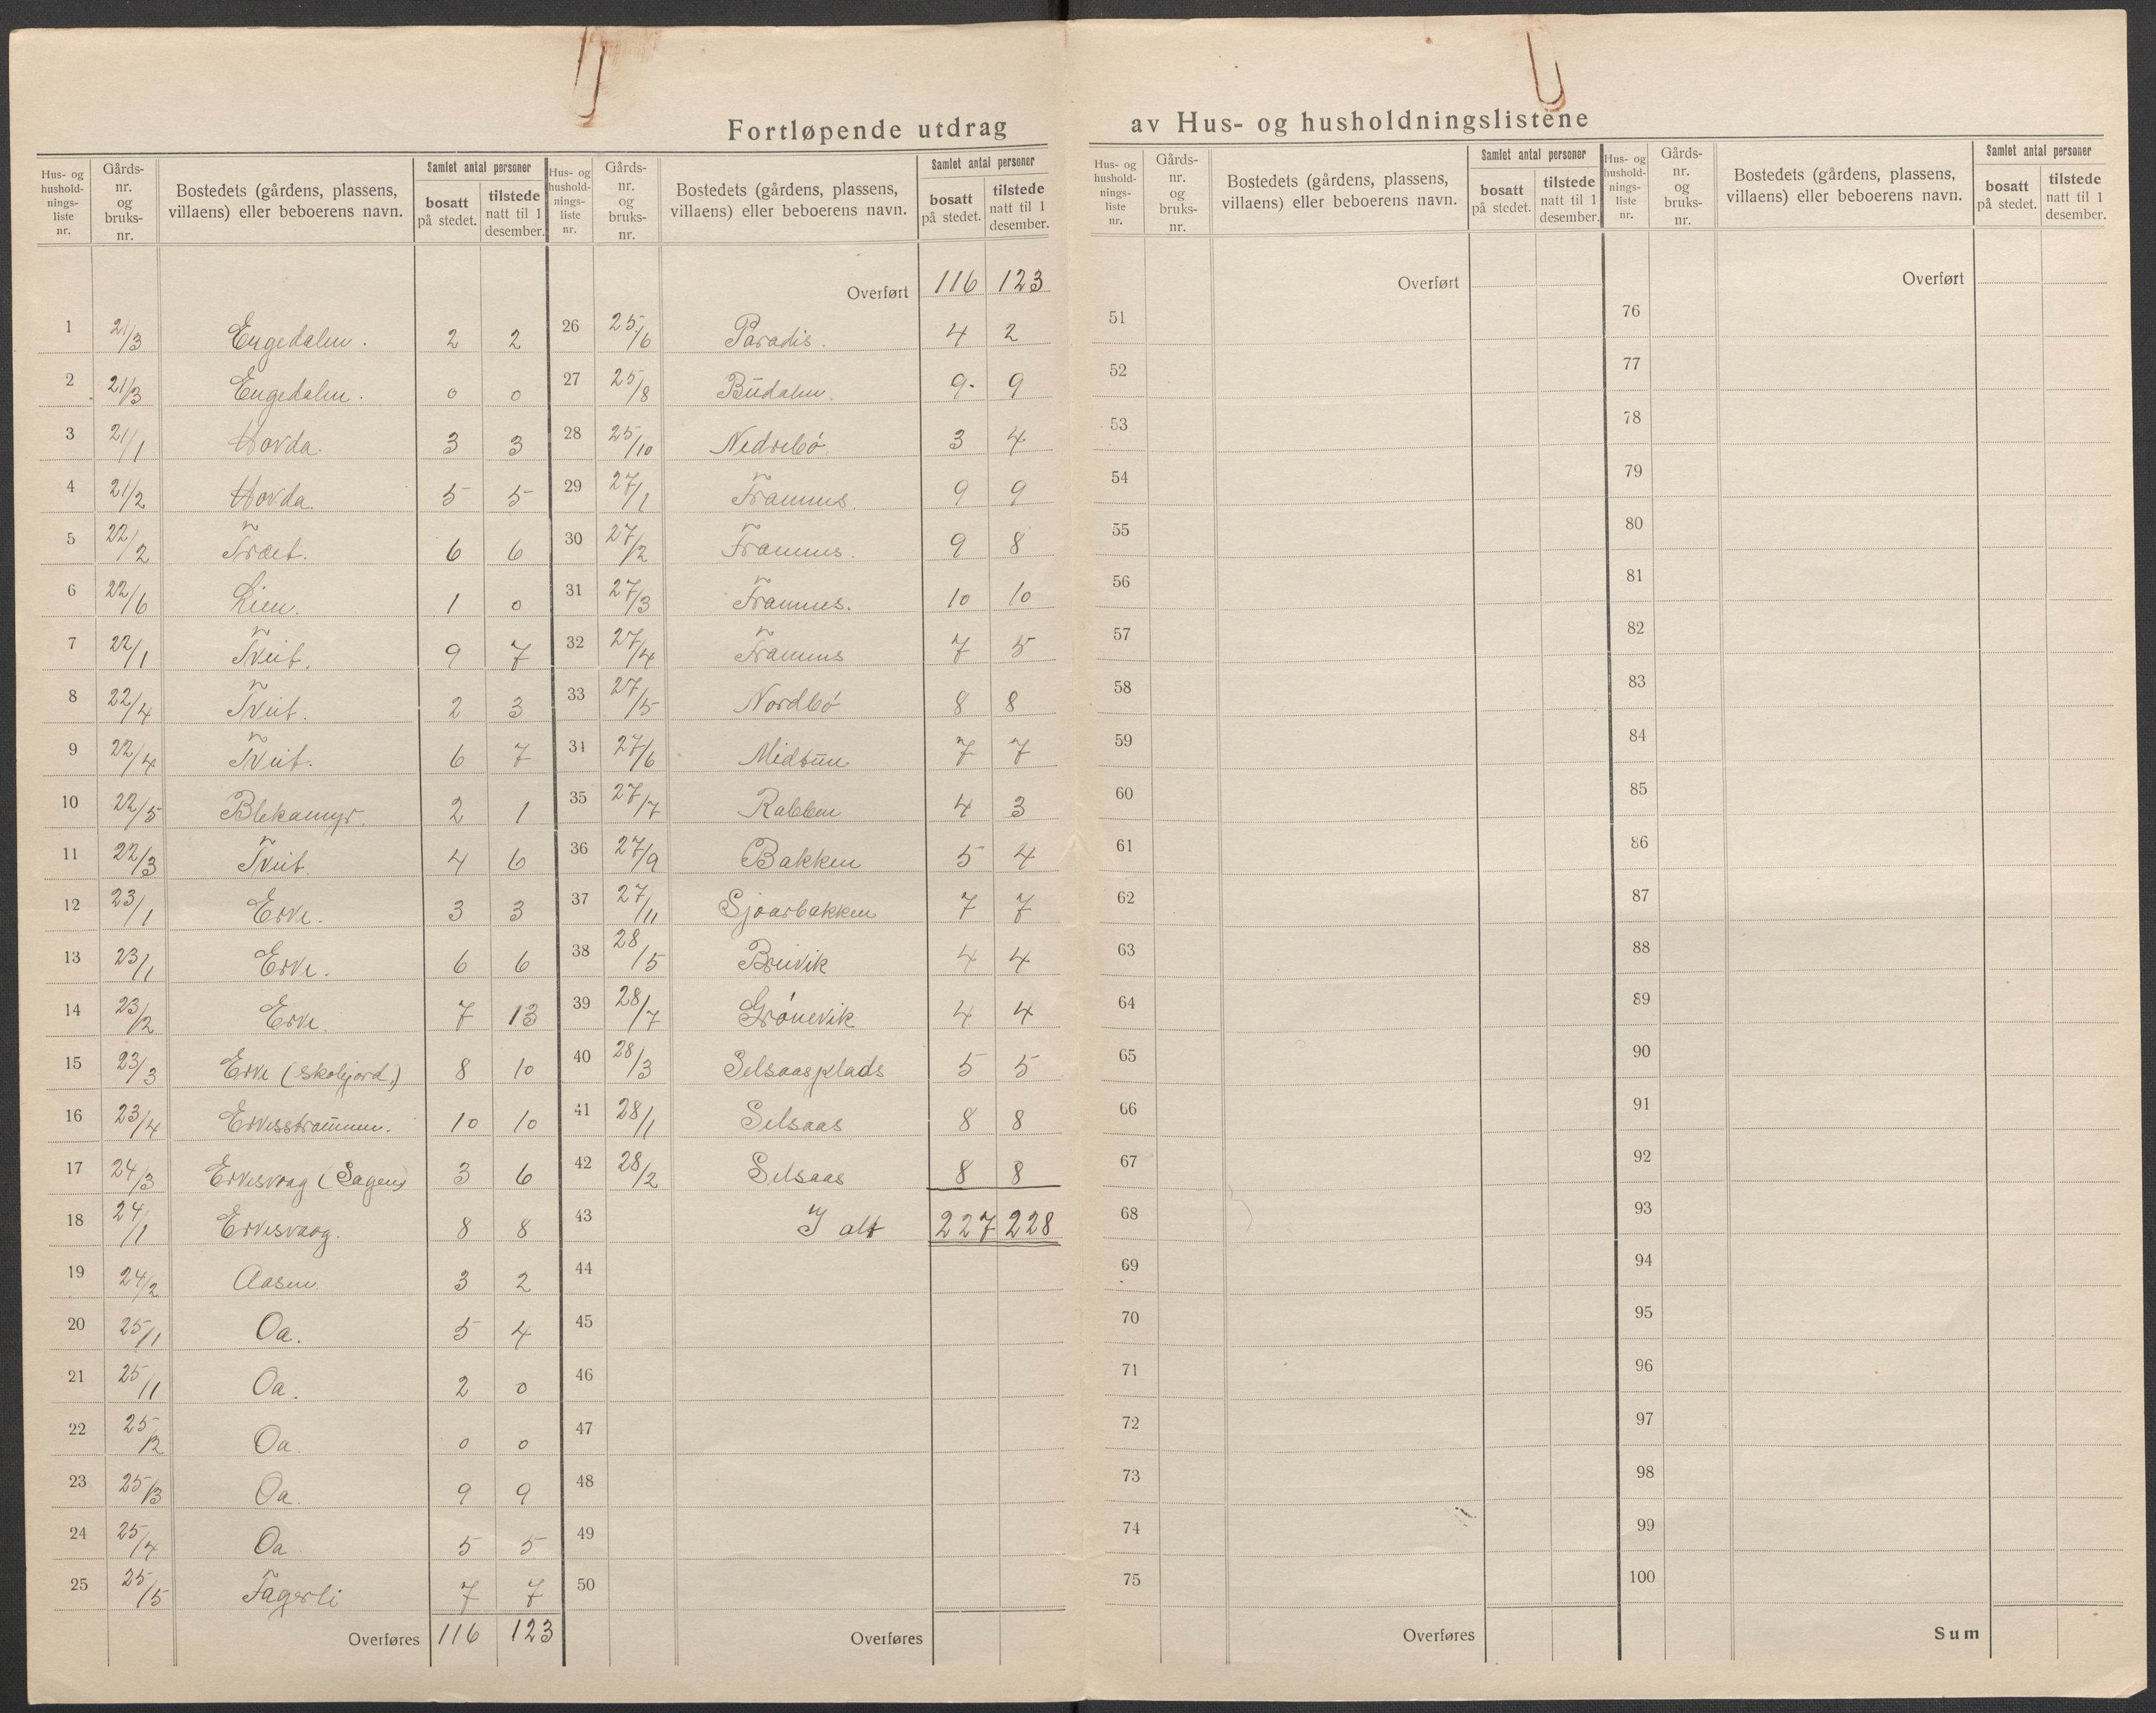 Fortløpende utdrag av Hus- og husholdningslistene
Hus- og husholdnings-liste nr. | Gårds-nr. og bruks-nr. | Bostedets (gårdens, plassens, villaens) eller beboerens navn. | Samlet antal personer | bosatt på stedet. | tilstede natt til 1 desember.
1 21/3 Engedalen. 2 2
2 21/3 Engedalen. 0 0
3 21/1 Hovda. 3 3
4 21/2 Hovda. 5 5
5 22/2 Træet. 6 6
6 22/6 Lien. 1 0
7 22/1 Tveit. 9 7
8 22/4 Tveit. 2 3
9 22/4 Tveit. 6 7
10 22/5 Blekamyr. 2 1
11 22/3 Tveit. 4 6
12 23/1 Erve. 3 3
13 23/1 Erve. 6 6
14 23/2 Erve. 7 13
15 23/3 Erve (skolejord.) 8 10
16 23/4 Ervesstrømmen. 10 10
17 24/3 Ervesvaag (Sagen) 3 6
18 24/1 Ervesvaag. 8 8
19 24/2 Aasen. 3 2
20 25/1 Oa. 5 4
21 25/11 Oa. 2 0
22 25/2 Oa. 0 0
23 25/3 Oa. 9 9
24 25/4 Oa 5 5
25 25/5 Fagerli 7 7
Overføres 116 123
Hus- og husholdnings-liste nr. | Gårds-nr. og bruks-nr. | Bostedets (gårdens, plassens, villaens) eller beboerens navn. | Samlet antal personer | bosatt på stedet. | tilstede natt til 1 desember.
Overført 116 123
26 25/6 Paradis. 4 2
27 25/8 Budalen. 9 9
28 25/10 Nedrebø. 3 4
29 27/1 Framnes. 9 9
30 27/2 Framnes. 9 8
31 27/3 Framnes. 10 10
32 27/4 Framnes 7 5
33 27/5 Nordbø 8 8
34 27/6 Midtun 7 7
35 27/7 Rabben 4 3
36 27/9 Bakken 5 4
37 27/11 Sjoarbakken 7 7
38 28/5 Breivik 4 4
39 28/7 Grønevik 4 4
40 28/3 Selsaasplads 5 5
41 28/1 Selsaas 8 8
42 28/2 Selsaas 8 8
43 I alt 227 228
44
45
46
47
48
49
50
Overføres
Hus- og husholdnings-liste nr. | Gårds-nr. og bruks-nr. | Bostedets (gårdens, plassens, villaens) eller beboerens navn. | Samlet antal personer | bosatt på stedet. | tilstede natt til 1 desember.
Overført
51
52
53
54
55
56
57
58
59
60
61
62
63
64
65
66
67
68
69
70
71
72
73
74
75
Overføres
Hus- og husholdnings-liste nr. | Gårds-nr. og bruks-nr. | Bostedets (gårdens, plassens, villaens) eller beboerens navn. | Samlet antal personer | bosatt på stedet. | tilstede natt til 1 desember.
Overført
76
77
78
79
80
81
82
83
84
85
86
87
88
89
90
91
92
93
94
95
96
97
98
99
100
Sum